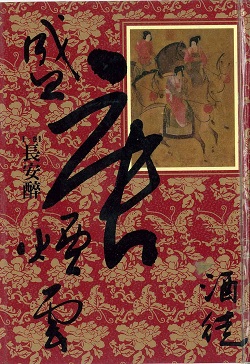 盛唐煙雲
長安醉
酒徒